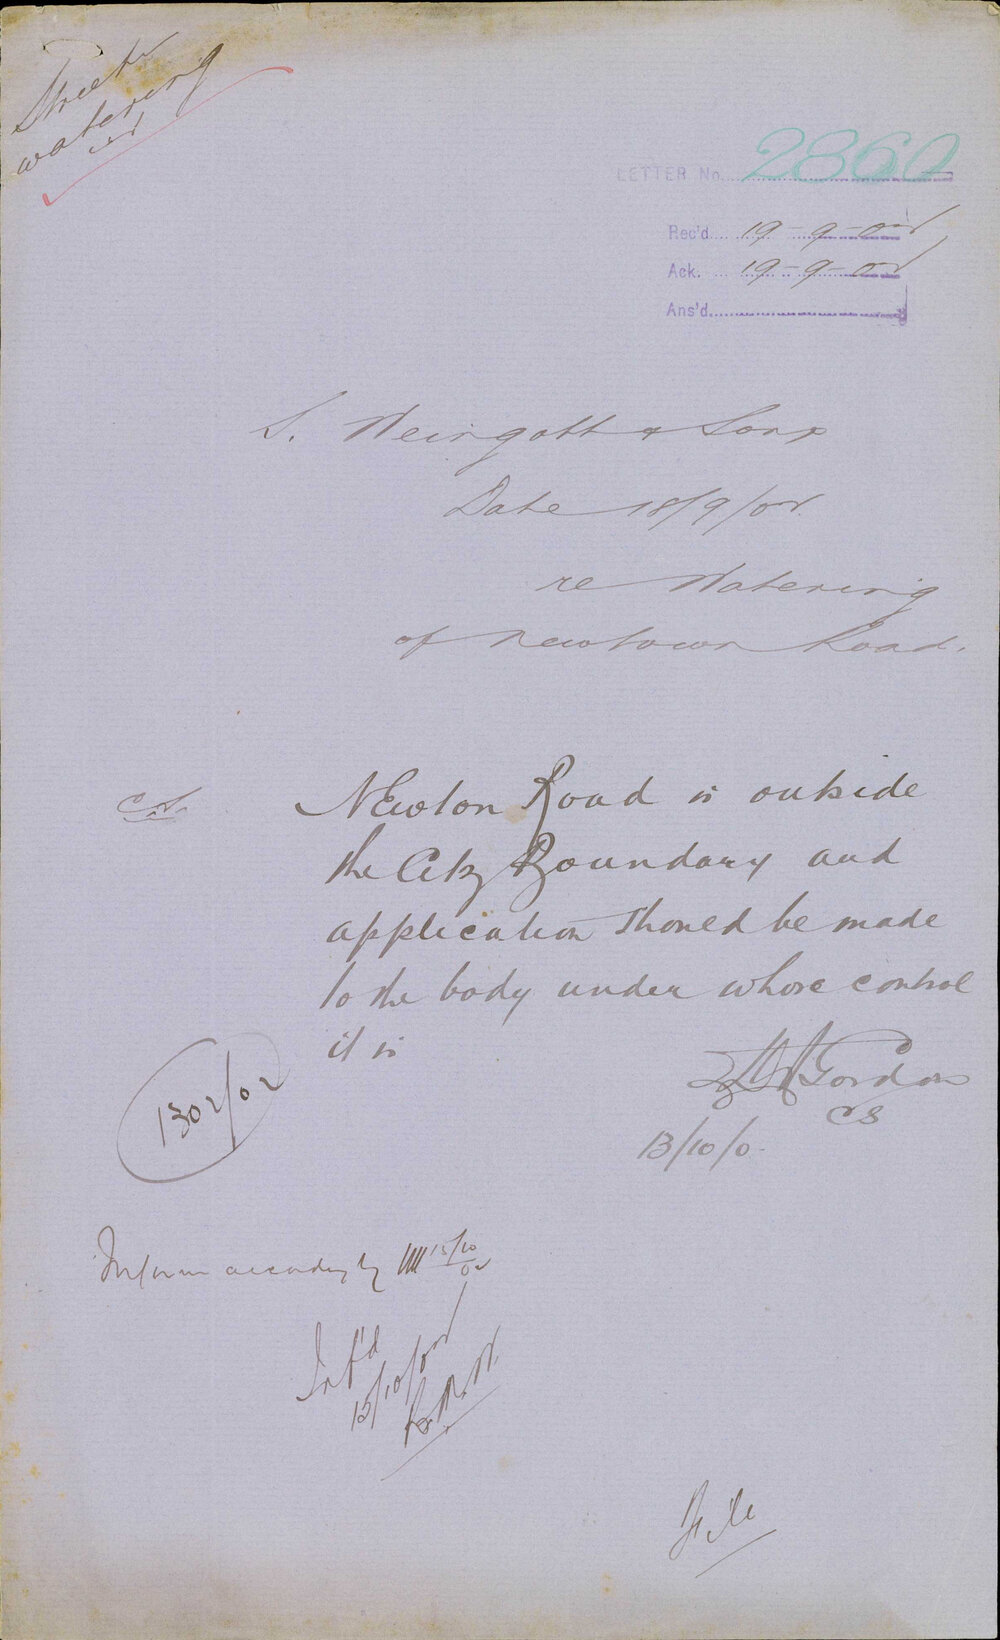 Streets
watering
LETTER No. 2860
Rec'd 19-9-02
Ack. 19-9-02
Ans'd
S. Weingott & Sons
Date 18/9/02.
re Watering
of Newtown Road.
C.S.
Newton Road is outside
the City Boundary and
application should be made
to the body under whose control
it is
Gordon
CS
13/10/0
1302/02
Inform accordingly 15/10/02
Inf'd
15/10/02
File